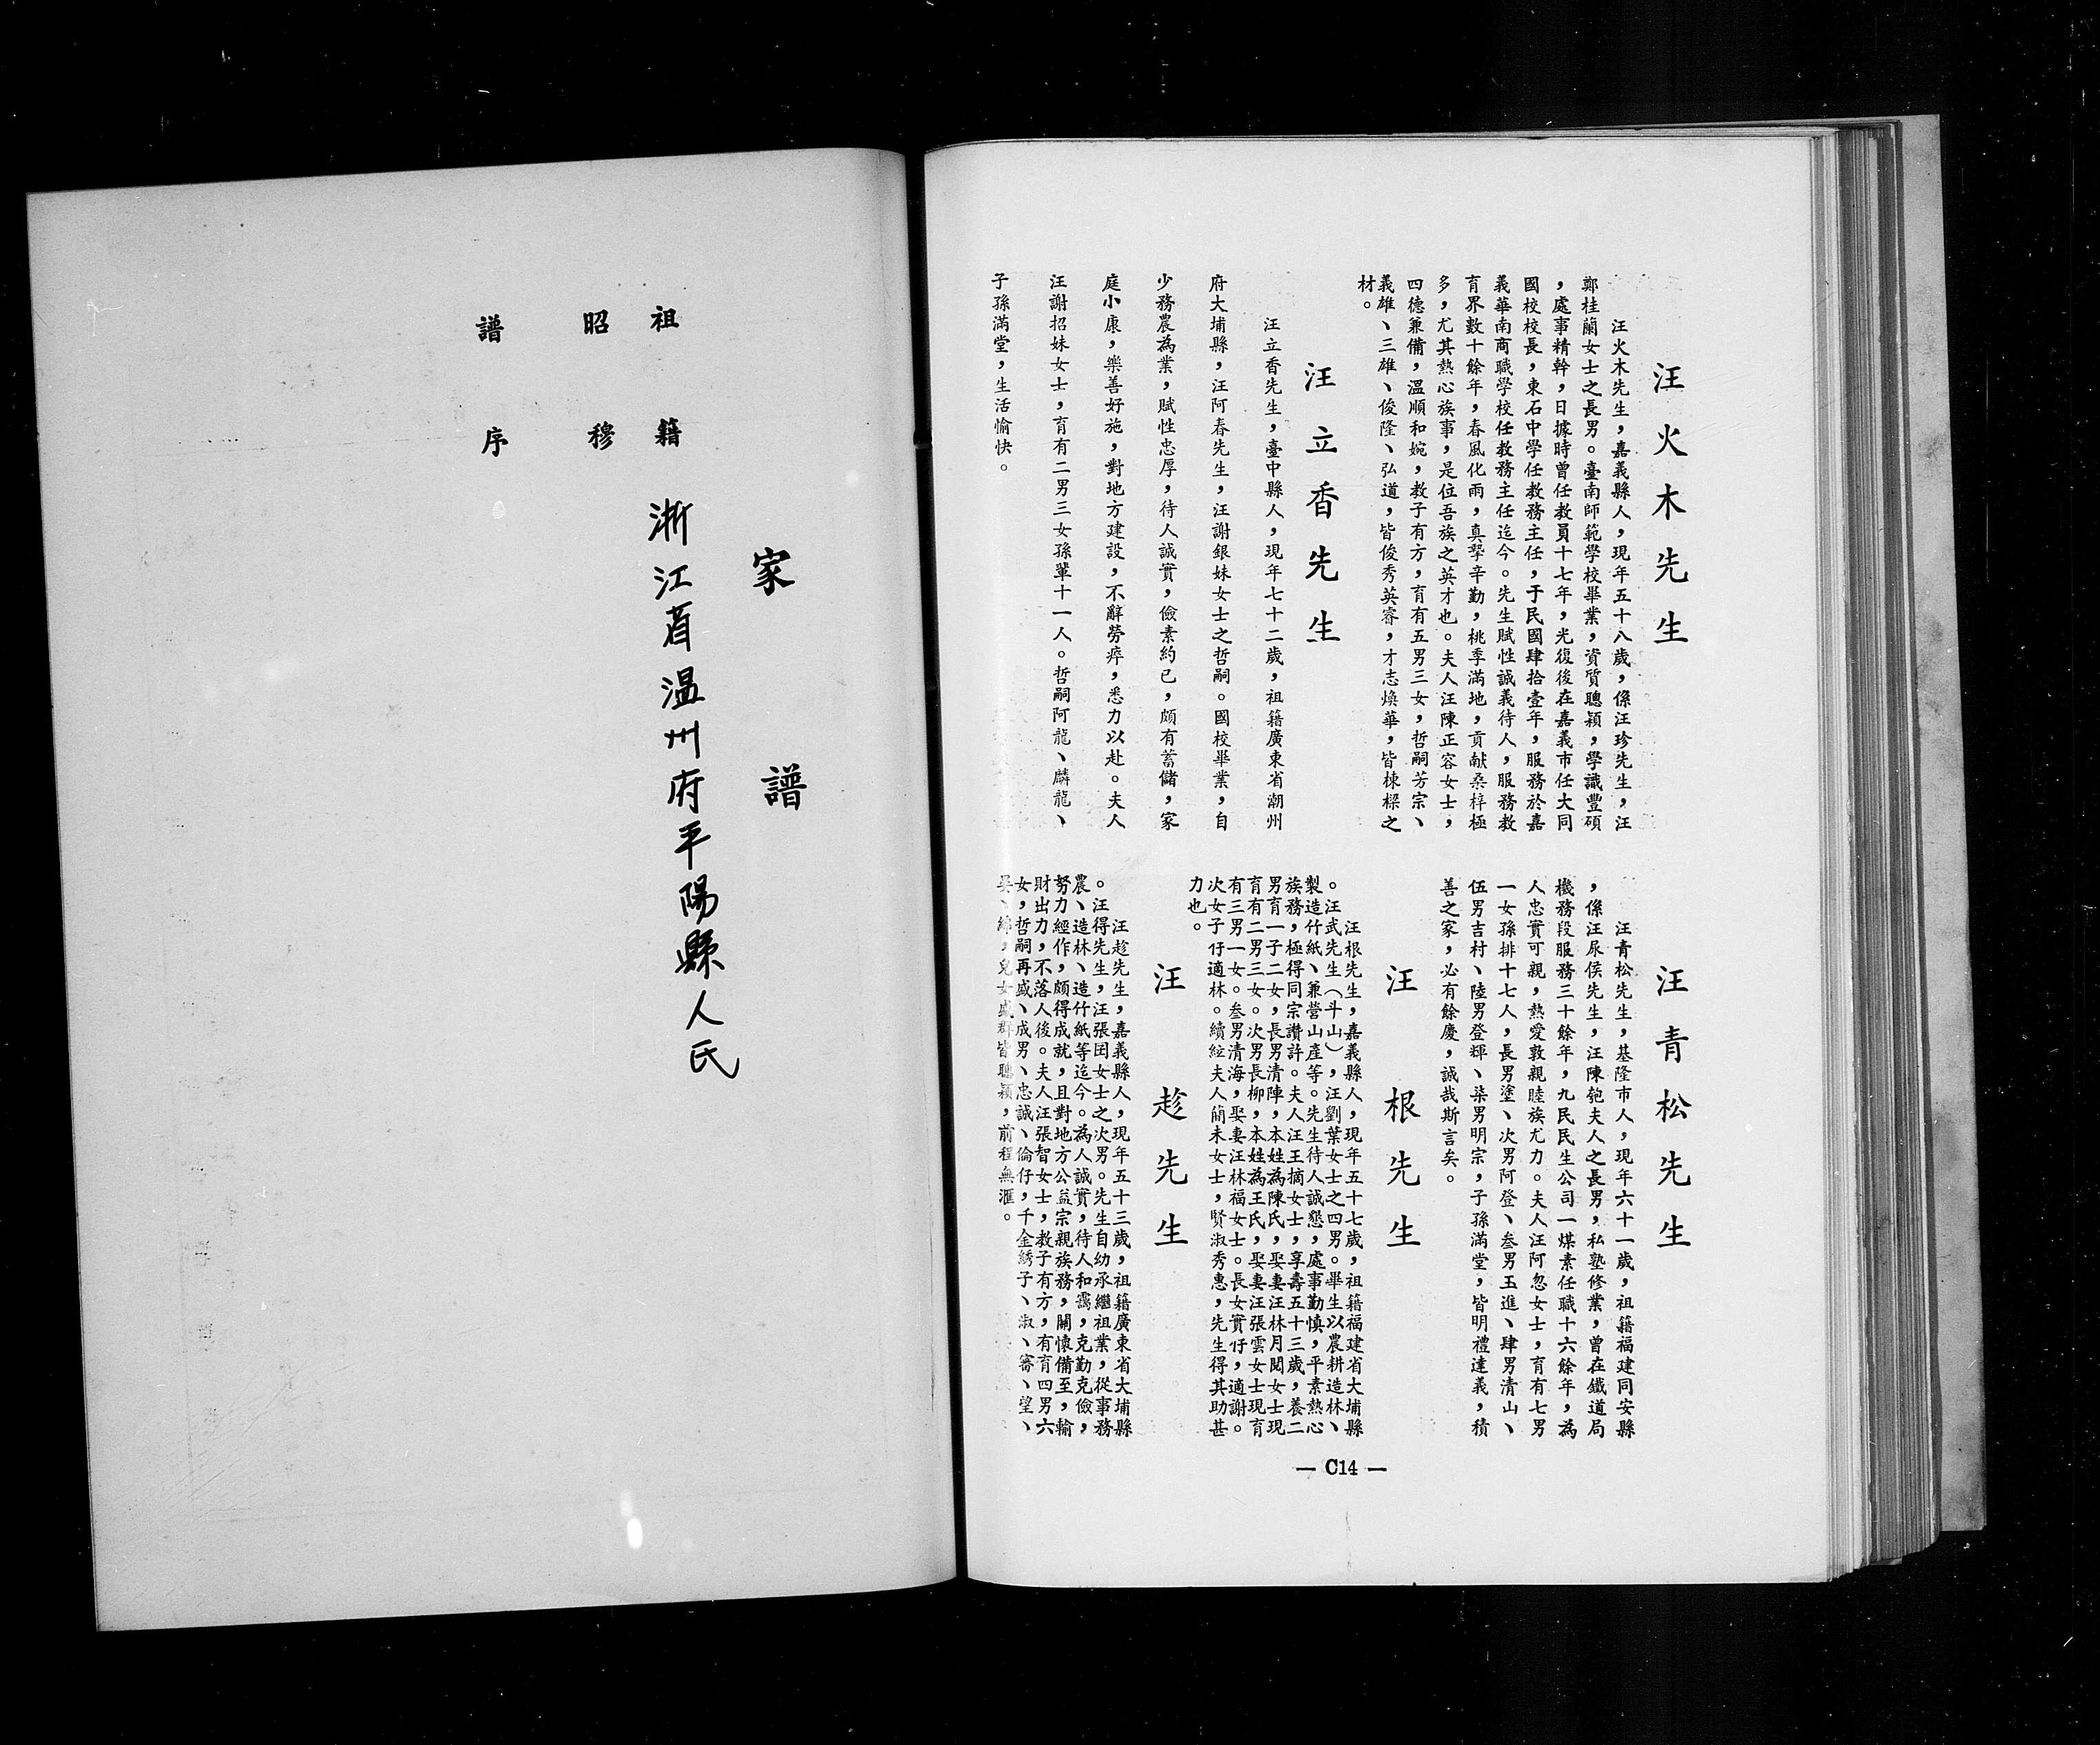 汪火木先生
汪火木先生，嘉義縣人，現年五十八歲，係汪珍先生，汪
鄭桂蘭女士之長男。臺南師範學校畢業，資質聰穎，學識豐碩
，處事精幹，日據時曾任教員十七年，光復後在嘉義市任大同
國校校長，東石中學任教務主任，于民國肆拾壹年，服務於嘉
義華南商職學校任教務主任迄今。先生賦性誠義待人，服務教
育界數十餘年，春風化雨，真摯辛勤，桃季滿地，貢献桑梓極
多，尤其熱心族事，是位吾族之英才也。夫人汪陳正容女士，
四德兼備，溫順和婉，教子有方，育有五男三女，哲嗣芳宗、
義雄、三雄、俊隆、弘道，皆俊秀英睿，才志煥華，皆棟樑之
材。
汪立香先生
汪立香先生，臺中縣人，現年七十二歲，祖籍廣東省潮州
府大埔縣，汪阿春先生，汪謝銀妹女士之哲嗣。國校畢業，自
少務農為業，賦性忠厚，待人誠實，儉素約已，頗有蓄儲，家
庭小康，樂善好施，對地方建設，不辭勞瘁，悉力以赴。夫人
汪謝招妹女士，育有二男三女孫輩十一人。哲嗣阿龍、麟龍、
子孫滿堂，生活愉快。
汪青松先生
汪青松先生，基隆市人，現年六十一歲，祖籍福建同安縣
，係汪尿侯先生，汪陳匏夫人之長男，私塾修業，曾在鐵道局
機務段服務三十餘年，九民民生公司一煤素任職十六餘年，為
人忠實可親，熱愛敦親睦族尤力。夫人汪阿忽女士，育有七男
一女孫排十七人，長男塗、次男阿登、叁男玉進、肆男清山、
伍男吉村、陸男登輝、柒男明宗，子孫滿堂，皆明禮達義，積
善之家，必有餘慶，誠哉斯言矣。
汪根先生
汪根先生，嘉義縣人，現年五十七歲，祖籍福建省大埔縣
。汪武先生（斗山），汪劉葉女士之四男。畢生以農耕造林、
製造竹紙、兼營山產等。先生待人誠懇，處事勤慎，平素熱心
族務，極得同宗讚許。夫人汪王摘女士，享壽五十三歲，養二
男育一子二女，長男清陣，本姓為陳氏，娶妻汪林月閱女士現
育有二男三女。次男長柳，本姓為王氏，娶妻汪張雲女士現育
有三男一女。叁男清海，娶妻汪林福女士。長女實仔，適謝。
次女子仔適林。續絃夫人簡未女士，賢淑秀惠，先生得其助甚
力也。
汪趁先生
汪趁先生，嘉義縣人，現年五十三歲，祖籍廣東省大埔縣
。汪得先生，汪張囝女士之次男。先生自幼承繼祖業，從事務
農、造林、造竹紙等迄今。為人誠實，待人和靄，克勤克儉，
努力經作，頗得成就，且對地方公益宗親族務，關懷備至，輸
財出力，不落人後。夫人汪張智女士，教子有方，有育四男六
女，哲嗣再盛、成男、忠誠、倫仔，千金綉子、淑、審、望、
吳、綿，兒女盛群皆聰穎，前程無滙。
— C14 —
家譜
祖籍 浙江省温州府平陽縣人氏
昭穆
譜序